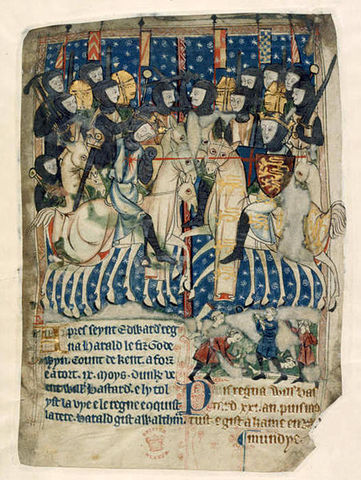 pres seynt Edward reg
na Harald le fiz Gode
wyn. Counte de Kent. a fort
e a tort. ix. moys. Dunk ve
ent Will Bastard. e ly tol
yst la vye e le regne enquist
la tere. Harald gist a Walthm
Puis regna Will bas
tard xx. an. puis mo
rust e gist a kame en
mundye.